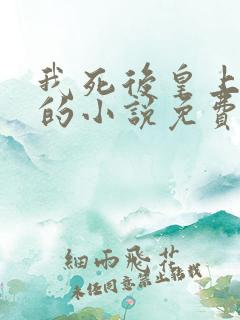 我死後皇上
的小說免費
細雨飛花
未经同意禁止转载